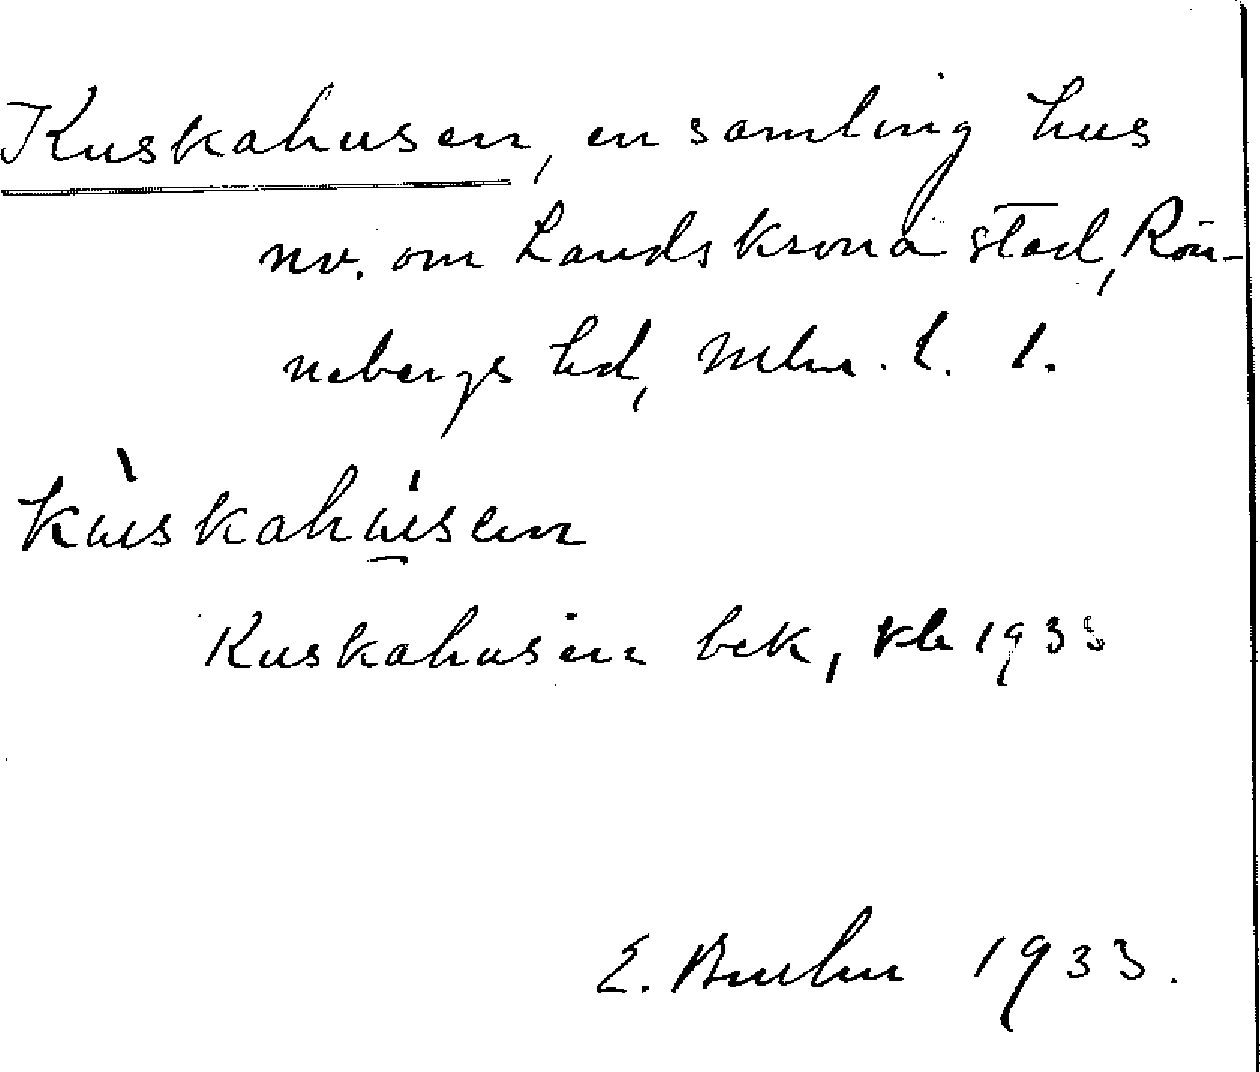 Kuskahusen, en samling hus
nv. om Landskrona stad, Rön-
nebergs hd, Mlm. l. 1.
kùskahúsen
Kuskahusen bek, vb 1933
E. 1933.